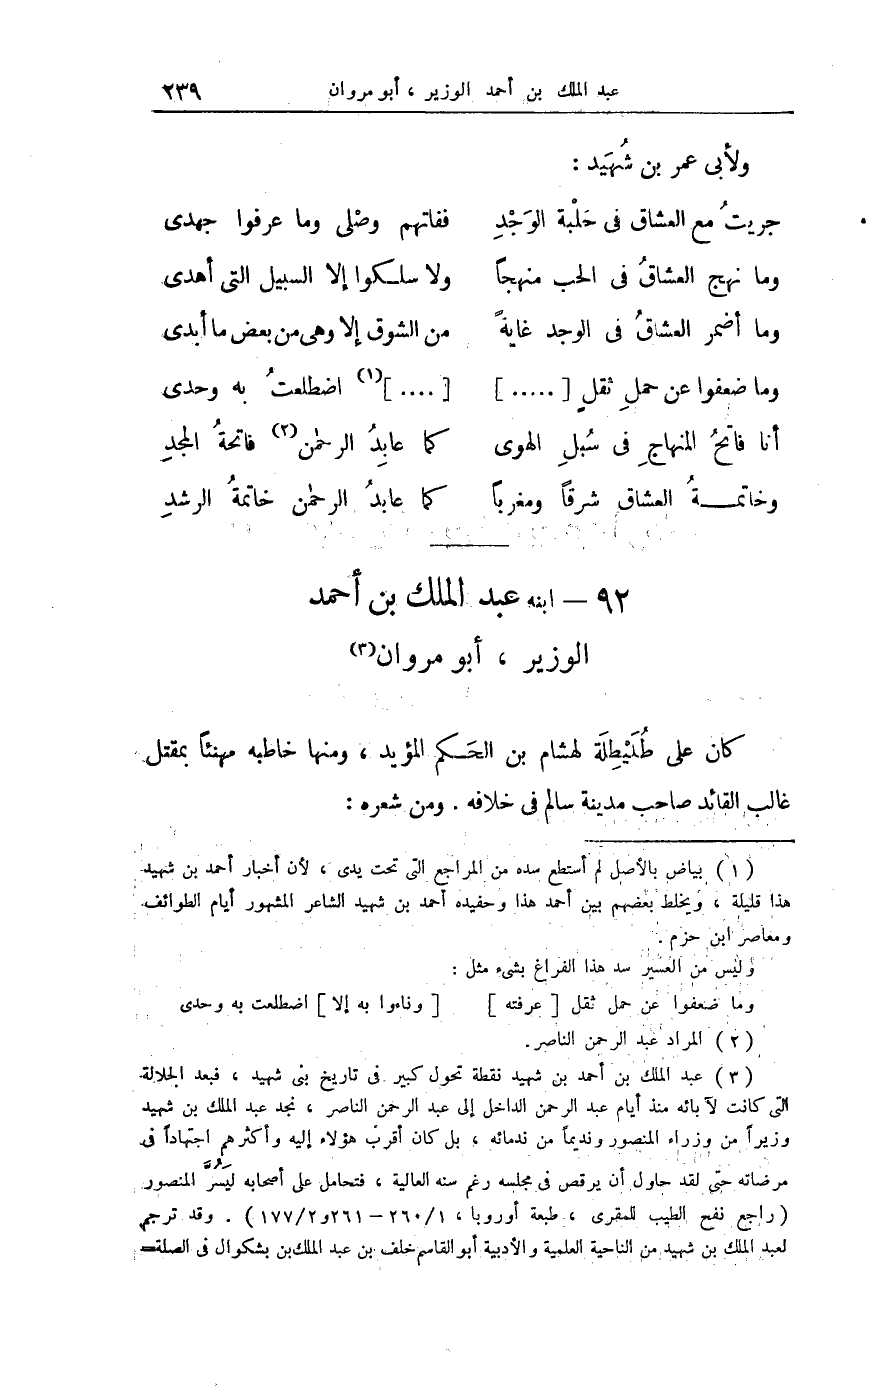 عبد الملك بن أحمد الوزير ، أبو مروان ٢٣٩
ولأبى عمر بن شُهَيد :
جريتُ مع العشاق فى حَلْبة الوَجْدِ ففاتهم وصْلى وما عرفوا جهدى
وما نهج العشاقُ فى الحب منهجاً ولا سلكوا إلا السبيل التى أهدى
وما أضمر العشاقُ فى الوجد غايةً من الشوق إلا وهى من بعض ما أبدى
وما ضعفوا عن حملِ ثقلٍ [ ..... ] [ .... ](١) اضطلعتُ به وحدى
أنا فاتحُ المنهاجِ فى سُبلِ الهوى كما عابِدُ الرحمٰن(٢) فاتحةُ المجدِ
وخاتمـــةُ العشاق شرقاً ومغرباً كما عابدُ الرحمٰن خاتمةُ الرشدِ
٩٢ – ابنه عبد الملك بن أحمد
الوزير ، أبو مروان(٣)
كان على طُلَيْطِلَة لهشام بن الحَـكم المؤيد ، ومنها خاطبه مهنئاً بمقتل
غالب القائد صاحب مدينة سالم فى خلافه . ومن شعره :
( ١ ) بياض بالأصل لم أستطع سده من المراجع التى تحت يدى ، لأن أخبار أحمد بن شهيد
هذا قليلة ، ويخلط بعضهم بين أحمد هذا وحفيده أحمد بن شهيد الشاعر المشهور أيام الطوائف
ومعاصر ابن حزم .
وليس من العسير سد هذا الفراغ بشىء مثل :
وما ضعفوا عن حمل ثقل [ عرفته ] [ وناءوا به إلا ] اضطلعت به وحدى
( ٢ ) المراد عبد الرحمن الناصر .
( ٣ ) عبد الملك بن أحمد بن شهيد نقطة تحول كبير فى تاريخ بنى شهيد ، فبعد الجلالة
التى كانت لآبائه منذ أيام عبد الرحمن الداخل إلى عبد الرحمن الناصر ، نجد عبد الملك بن شهيد
وزيراً من وزراء المنصور ونديماً من ندمائه ، بل كان أقربَ هؤلاء إليه وأكثرهم اجتهاداً فى
مرضاته حتى لقد حاول أن يرقص فى مجلسه رغم سنه العالية ، فتحامل على أصحابه ليَسُرَّ المنصور
( راجع نفح الطيب للمقرى ، طبعة أوروبا ، ٢٦٠/١ – ٢٦١ و١٧٧/٢ ) . وقد ترجم
لعبد الملك بن شهيد من الناحية العلمية والأدبية أبو القاسم خلف بن عبد الملك بن بشكوال فى الصلة=